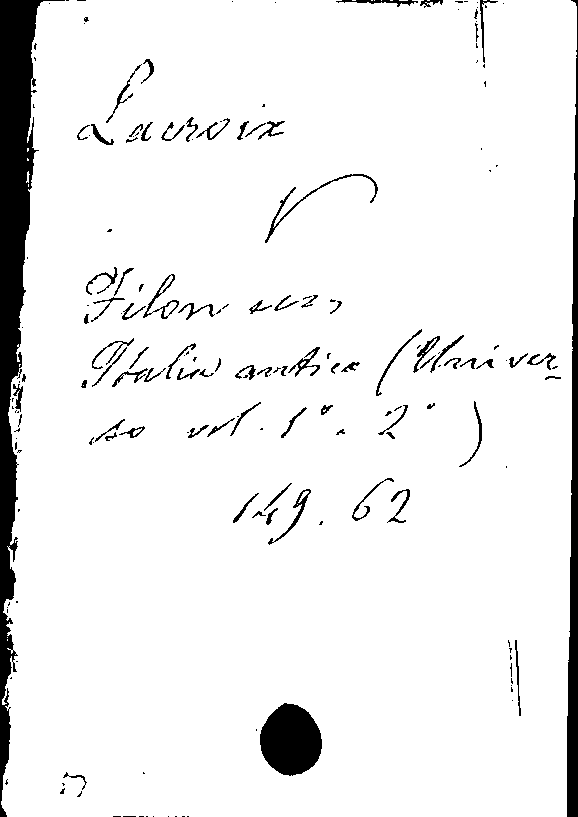 Lacroix
V
Filon ecc,
Italia antica (Univer-
so vol. 1° - 2°)
149. 62